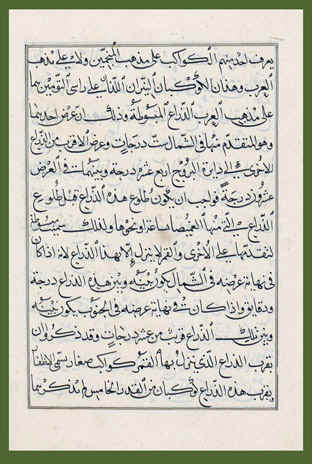 يعرف احد منهم الكواكب على مذهب المنجمين ولا على مذهب
العرب وهذان الكوكبان النيران اللذان على راسى التوءمين هما
على مذهب العرب الذراع المبسوطة وذلك ان عرض احدهما
وهو المتقدم منهما فى الشمال ست درجات وعرض الاقرب من الذراع
الاخرى دايرة البروج اربع عشرة درجة وبينهما فى العرض
عشرون درجة فواجب ان يكون طلوع هذه الذراع قبل طلوع
الذراع التى منها الغميصاء او نحوها ولذلك سميت
لتقدمها على الاخرى والقمر ينزل بهذا الذراع لانه اذا كان
فى نهاية عرضه فى الشمال يكون بينه وبين هذه الذراع درجة
ودقايق واذا كان فى نهاية عرضه فى الجنوب يكون بينه
وبين تلك الذراع قريب من عشر درجات وقد ذكروا ان
بقرب الذراع الذى ينزل بها القمر كواكب صغار تسمى الاظفار
وبقرب هذه الذراع كوكبان من القدر الخامس لم يذكرهما